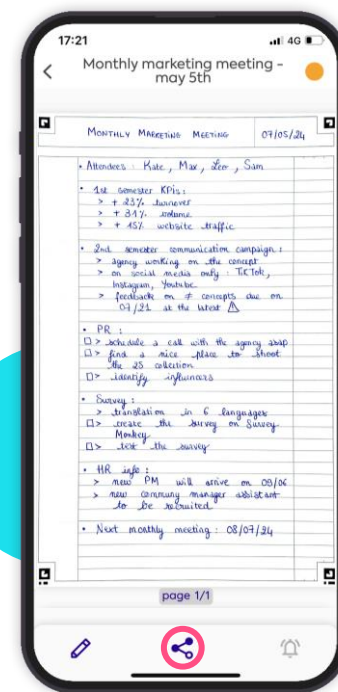 17:21 4G
Monthly marketing meeting -
may 5th
MONTHLY MARKETING MEETING 07/05/24
• Attendees : Kate, Max, Leo, Sam
• 1st semester KPIs :
> + 23% turnover
> + 31% volume
> + 15% website traffic
• 2nd semester communication campaign :
> agency working on the concept
> on social media only : TikTok,
Instagram, Youtube
> feedback on ≠ concepts due on
07/21 at the latest ⚠
• PR :
□> schedule a call with the agency asap
□> find a nice place to shoot
the 2S collection
□> identify influencers
• Survey :
> translation in 6 languages
□> create the survey on Survey
Monkey
□> test the survey
• HR info :
> new PM will arrive on 09/06
> new community manager assistant
to be recruited
• Next monthly meeting : 08/07/24
page 1/1